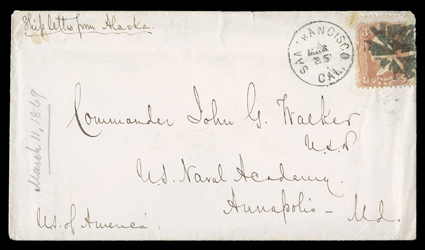 Ship letter from Alaska.
SAN FRANCISCO
MAR
25
CAL.
3
Commander John G. Walker
U.S.N
U.S. Naval Academy
Annapolis - Md.
U.S. of America.
March 11, 1869